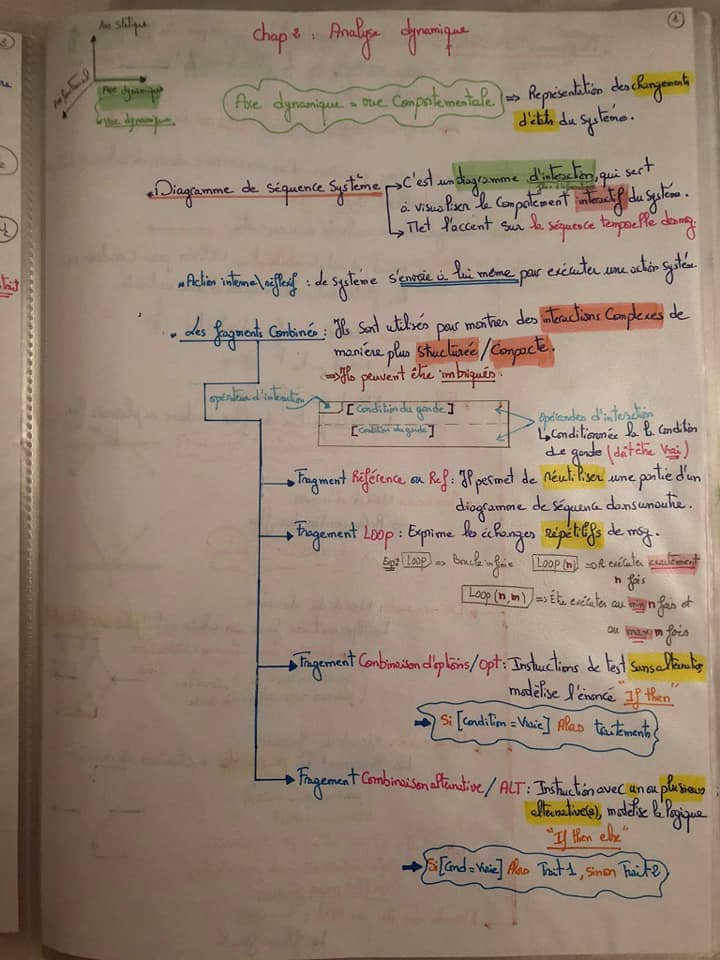 Axe statique
Axe fonctionnel
Axe dynamique
Vue dynamique
1
Chap 2 : Analyse dynamique
Axe dynamique = vue Comportementale
=> Représentation des changements
d'états du système.
Diagramme de Séquence Système
C'est un diagramme d'interaction, qui sert
à visualiser le Comportement interactif du système.
Met l'accent sur la séquence temporelle des msg.
Action interne\réflexif : de Système s'envoie à lui même pour exécuter une action système
Les fragments Combinés : Ils sont utilisés pour montrer des interactions Complexes de
manière plus structurée / Compacte.
=> Ils peuvent être imbriqués.
opérateur d'interaction
[Condition du garde]
[Condition du garde]
opérandes d'interaction
Conditionnée la condition
de garde (doit être Vrai)
Fragment Référence ou Ref : Il permet de réutiliser une partie d'un
diagramme de séquence dans un autre.
Fragement LOOP : Exprime les échanges répétitifs de msg.
LOOP => Boucle infinie LOOP(n) => exécuter exactement
n fois
Loop(n,m) => Être exécuter au min n fois et
au max m fois
Fragement Combinaison d'options / OPT : Instructions de test sans alternative
modélise l'énoncé "If then"
Si [Condition = Vraie] Alors traitements
Fragement Combinaison alternative / ALT : Instruction avec un ou plusieurs
alternative(s), modélise la logique
"If then else"
Si [Cond = Vraie] Alors Trait 1, sinon Trait 2